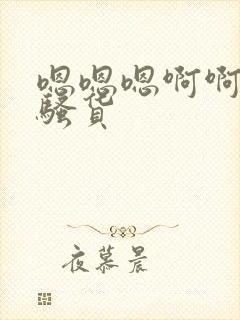 嗯嗯嗯啊啊
骚货
夜慕晨